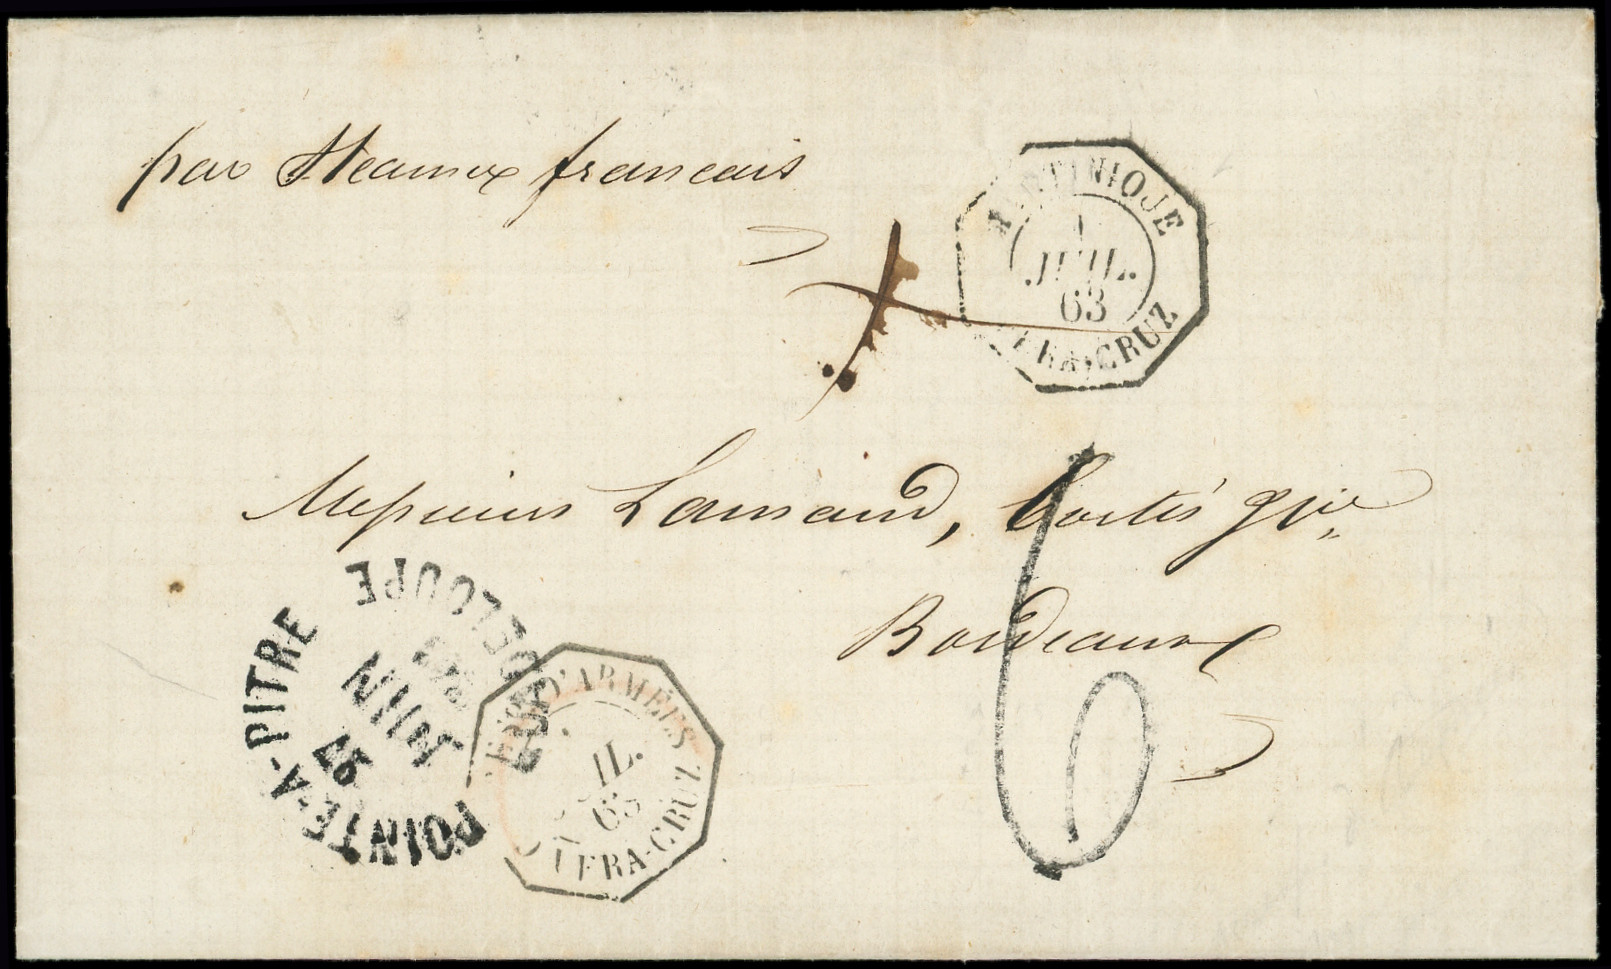 par Steamer francais
MARTINIQUE
1
JUIL.
63
VERA-CRUZ
Messieurs Lamaud, Cortés & Cie
Bordeaux
6
POINTE-A-PITRE
JUIN
CORR. D'ARMÉES
JUIL.
63
VERA-CRUZ